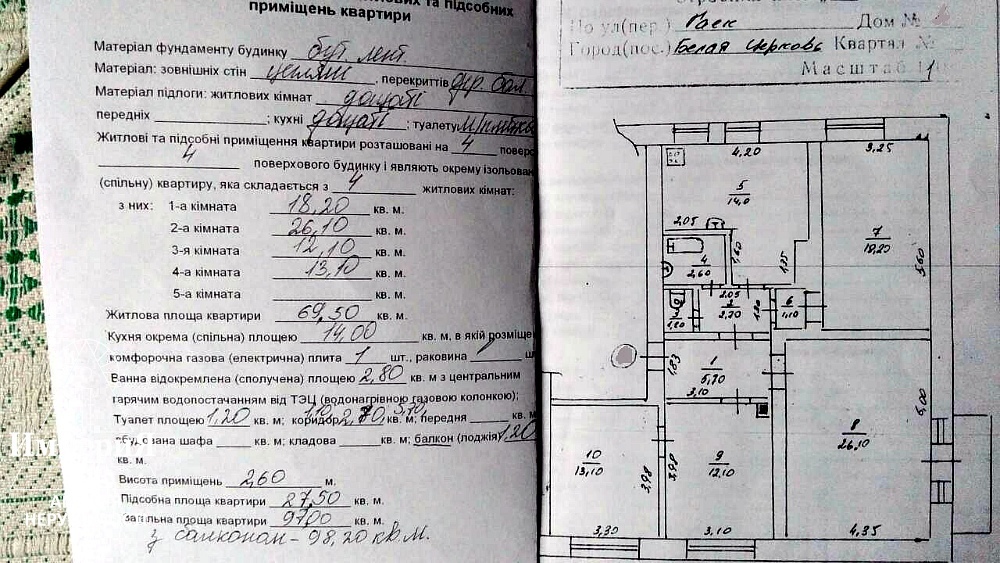 та підсобних
приміщень квартири
Матеріал фундаменту будинку бут. лент.
Матеріал: зовнішніх стін цеглян , перекриттів дер. бал.
Матеріал підлоги: житлових кімнат дощаті
передніх ; кухні дощаті ; туалету
Житлові та підсобні приміщення квартири розташовані на 4 поверс
4 поверхового будинку і являють окрему ізольован
(спільну) квартиру, яка складається з 4 житлових кімнат:
з них: 1-а кімната 18,20 кв. м.
2-а кімната 26,10 кв. м.
3-я кімната 12,10 кв. м.
4-а кімната 13,10 кв. м.
5-а кімната кв. м.
Житлова площа квартири 69,50 кв. м.
Кухня окрема (спільна) площею 14,00 кв. м, в якій розміще
комфорочна газова (електрична) плита 1 шт., раковина ш
Ванна відокремлена (сполучена) площею 2,80 кв. м з центральним
гарячим водопостачанням від ТЭЦ (водонагрівною газовою колонкою);
1,10 5,70
Туалет площею 1,20 кв. м; коридор 2,70 кв. м; передня кв. м
шафа кв. м; кладова кв. м; балкон (лоджія) 1,20
кв. м.
Висота приміщень 2,60 м.
Підсобна площа квартири 27,50 кв. м.
загальна площа квартири 97,00 кв. м.
з балконом - 98,20 кв.м.
По ул(пер.) Раск Дом №
Город(пос.) Белая Церковь Квартал №
Масштаб 1:1
4,20
3,25
5
14,0
7
18,20
5,60
2,05
1,60
1,35
4
2,60
3
1,20
2,05
2
2,70
1,30
6
1,10
1,83
1
5,70
3,10
8
26,10
6,00
4,35
10
13,10
3,98
3,30
3,98
9
12,10
3,10